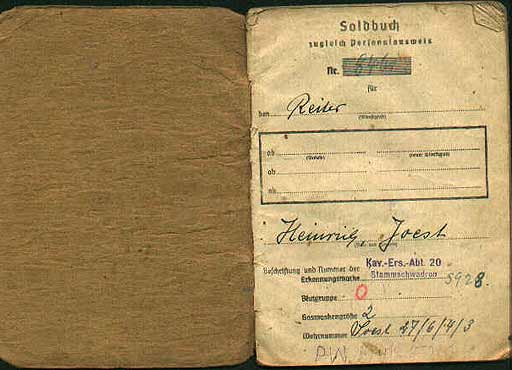 Soldbuch
zugleich Personalausweis
Nr.
für
den Reiter
(Dienstgrad)
ab
(Datum) (neuer Dienstgrad)
ab
ab
Heinrich Joest
Beschriftung und Nummer der Kav.-Ers.-Abt. 20
Erkennungsmarke Stammschwadron 5928
Blutgruppe O
Gasmaskengröße 2
Wehrnummer Soest 27/6/4/3
PW